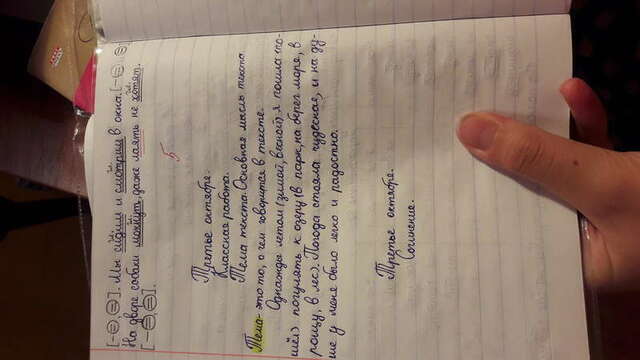 [-=,=]. Мы сидим и смотрим в окна. [-=, =].
На дворе собаки мокнут, даже лаять не хотят.
[-=,=].
5
Третье октября.
Классная работа.
Тема текста. Основная мысль текста
Тема - это то, о чем говорится в тексте.
Однажды летом (зимой, весной) я пошла (по-
шёл) погулять к озеру (в парк, на берег моря, в
рощу, в лес). Погода стояла чудесная, и на ду-
ше у меня было легко и радостно.
Третье октября.
Сочинение.